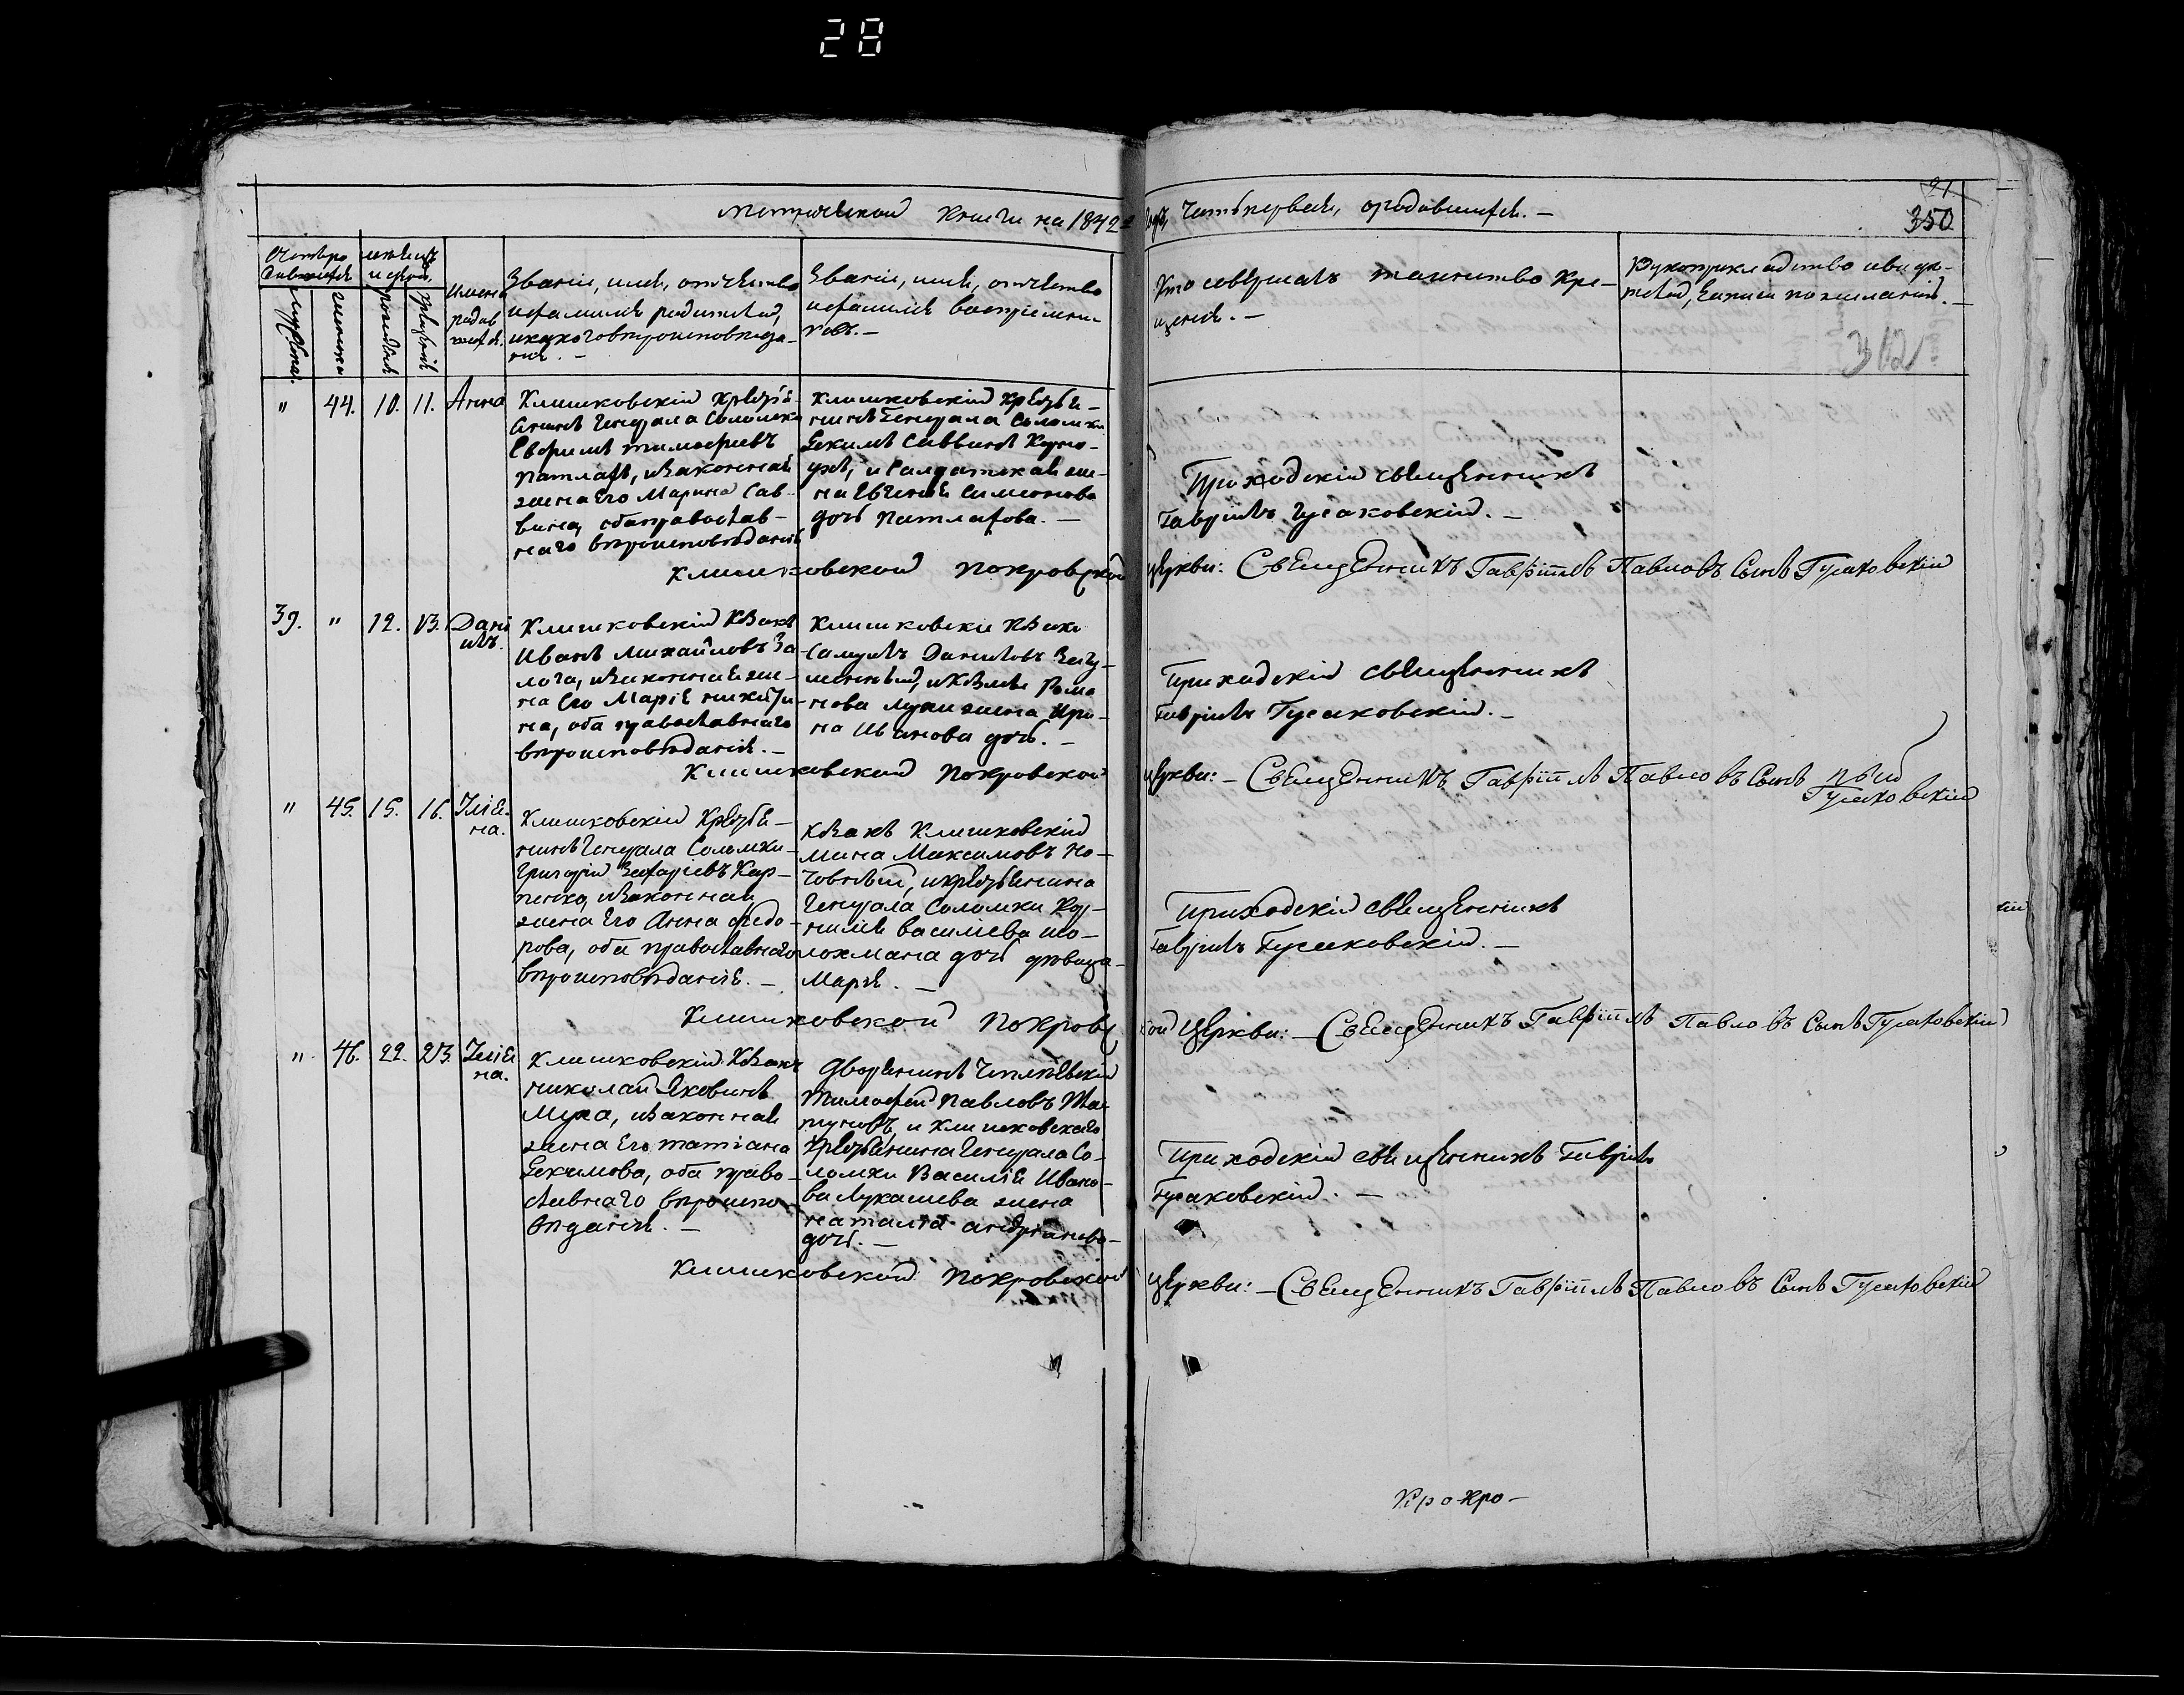 28
Метрической книги на 1842 годъ, часть первая, о родившихся. —
21
350
312
Счетъ ро-
дившихся
мѣсяцъ
и день
мужеска
женска
рожденія
крещенія
Имена
родив
шихся.
Званіе, имя, отчество
и фамилія родителей,
и какого вѣроисповѣда-
нія. —
Званіе, имя, отчество
и фамилія воспріемни-
ковъ. —
Кто совершалъ таинство кре-
щенія. —
Рукоприкладство свидѣ-
телей, записи по желанію. —
" 44. 10. 11. Анна
Клишковскій крестья-
нинъ Генерала Соломки
Ефимъ Тимофеевъ
Патлахъ, и законная
жена его Марина Сав-
вина, оба православ-
наго вѣроисповѣданія
Клишковскій крестья-
нинъ Генерала Соломки
Екимъ Саввинъ
и солдатская же-
на Евгенія Симеонова
дочь Патлахова. —
Приходскій священникъ
Гавріилъ Гусаковскій. —
Клишковской Покровской церкви: Священникъ Гавріилъ Павловъ Сынъ Гусаковскій
39. " 12. 13. Дані
илъ.
Клишковскій Козакъ
Иванъ Михайловъ За-
лога, и законная же-
на его Марія Никити-
на, оба православнаго
вѣроисповѣданія. —
Клишковскіе козаки
Самуилъ Даниловъ
и козака Рома
нова Мухи жена Ири-
на Иванова дочь. —
Приходскій священникъ
Гавріилъ Гусаковскій. —
Клишковской Покровской церкви: — Священникъ Гавріилъ Павловъ Сынъ
Гусаковскій
" 45. 15. 16. Іуліа-
на.
Клишковскій крестья-
нинъ Генерала Соломки
Григорій Захаріевъ Кар-
пенко, и законная
жена его Анна Федо-
рова, оба православнаго
вѣроисповѣданія. —
Козакъ Клишковскій
Мина Максимовъ Но-
и крестьянина
Генерала Соломки Кор-
нилія Василіева Шо-
лохмана дочь дѣвица
Марія. —
Приходскій священникъ
Гавріилъ Гусаковскій. —
Клишковской Покровской Церкви: — Священникъ Гавріилъ Павловъ Сынъ Гусаковскій
" 46. 22. 23. Іуліа
на.
Клишковскій Козакъ
Николай Яковинъ
Муха, и законная
жена его Татіана
Екимова, оба право-
славнаго вѣроиспо-
вѣданія. —
Дворянинъ
Тимофей Павловъ
и Клишковскаго
крестьянина Генерала Со-
ломки Василія Ивано-
ва Лукашева жена
Наталія Андріанова
дочь. —
Приходскій священникъ Гавріилъ
Гусаковскій. —
Клишковской Покровской церкви: — Священникъ Гавріилъ Павловъ Сынъ Гусаковскій